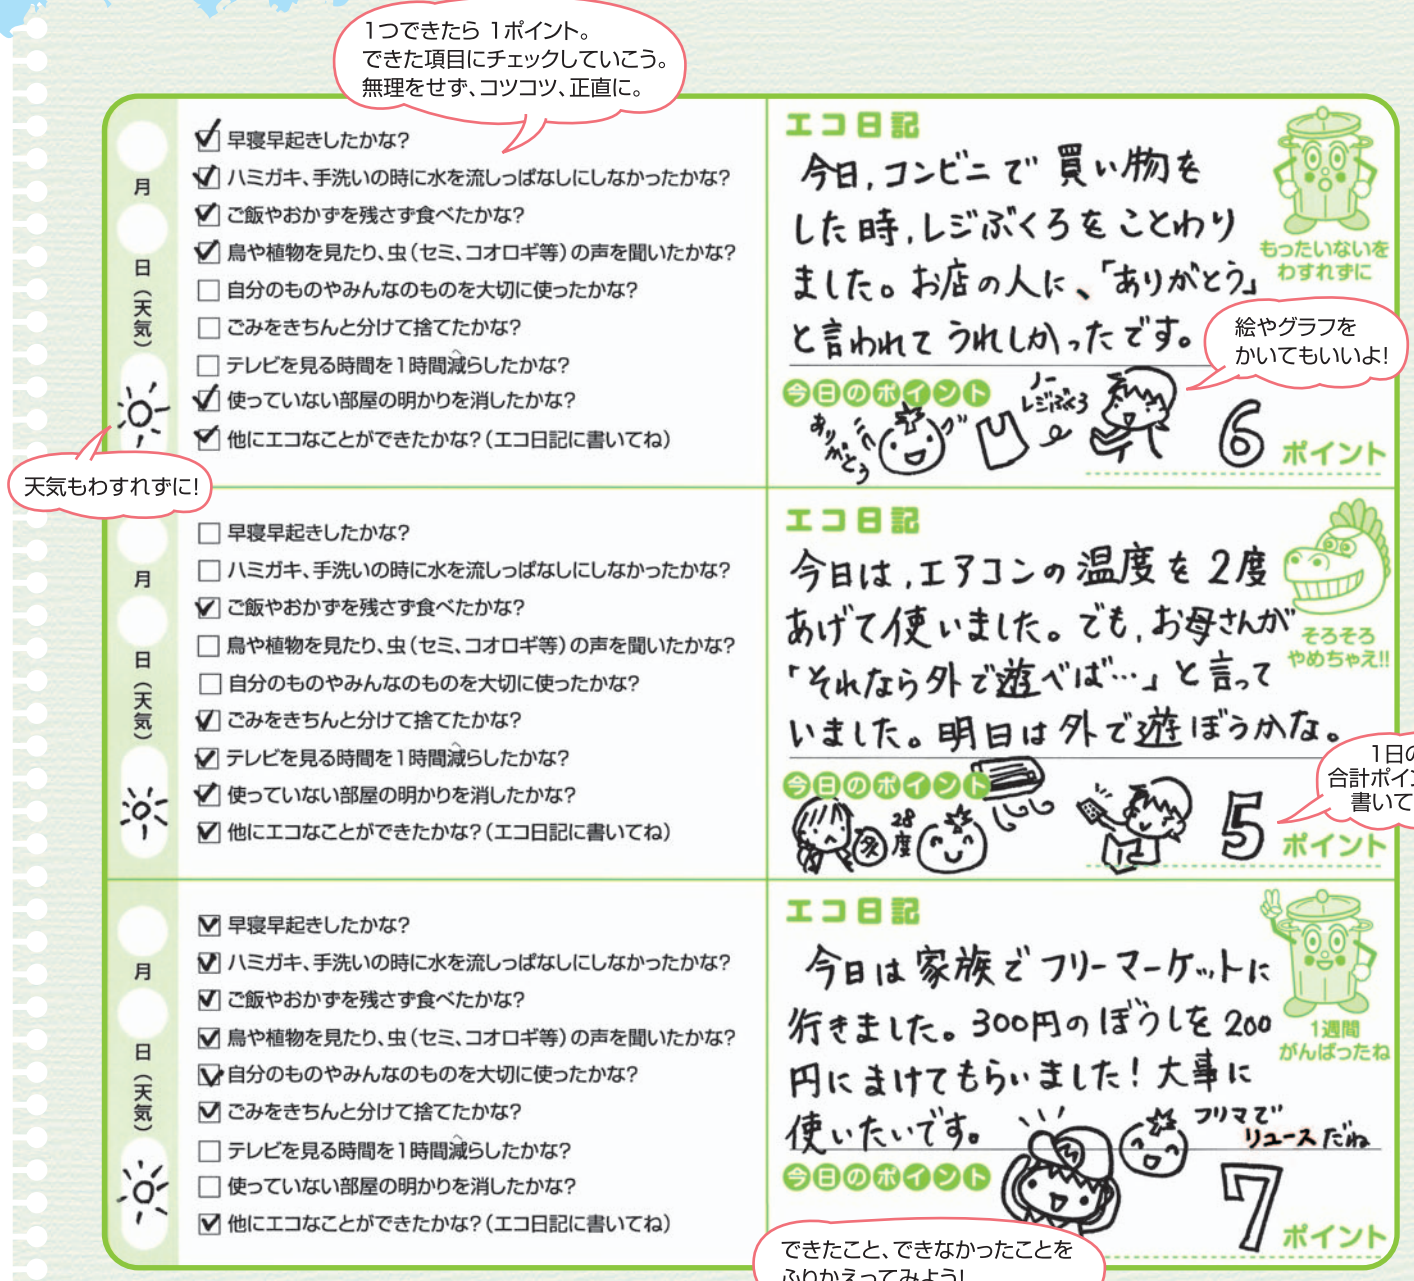 1つできたら 1ポイント。
できた項目にチェックしていこう。
無理をせず、コツコツ、正直に。
月
日(天気)
早寝早起きしたかな?
ハミガキ、手洗いの時に水を流しっぱなしにしなかったかな?
ご飯やおかずを残さず食べたかな?
鳥や植物を見たり、虫(セミ、コオロギ等)の声を聞いたかな?
自分のものやみんなのものを大切に使ったかな?
ごみをきちんと分けて捨てたかな?
テレビを見る時間を1時間減らしたかな?
使っていない部屋の明かりを消したかな?
他にエコなことができたかな?(エコ日記に書いてね)
天気もわすれずに!
エコ日記
今日,コンビニで買い物を
した時,レジぶくろをことわり
ました。お店の人に、「ありがとう」
と言われてうれしかったです。
もったいないを
わすれずに
絵やグラフを
かいてもいいよ!
今日のポイント
ありがとう
ノー
レジぶくろ
6 ポイント
月
日(天気)
早寝早起きしたかな?
ハミガキ、手洗いの時に水を流しっぱなしにしなかったかな?
ご飯やおかずを残さず食べたかな?
鳥や植物を見たり、虫(セミ、コオロギ等)の声を聞いたかな?
自分のものやみんなのものを大切に使ったかな?
ごみをきちんと分けて捨てたかな?
テレビを見る時間を1時間減らしたかな?
使っていない部屋の明かりを消したかな?
他にエコなことができたかな?(エコ日記に書いてね)
エコ日記
今日は,エアコンの温度を2度
あげて使いました。でも,お母さんが
「それなら外で遊べば…」と言って
いました。明日は外で遊ぼうかな。
そろそろ
やめちゃえ!!
1日の
合計ポイン
書いて
今日のポイント
28
度
5 ポイント
月
日(天気)
早寝早起きしたかな?
ハミガキ、手洗いの時に水を流しっぱなしにしなかったかな?
ご飯やおかずを残さず食べたかな?
鳥や植物を見たり、虫(セミ、コオロギ等)の声を聞いたかな?
自分のものやみんなのものを大切に使ったかな?
ごみをきちんと分けて捨てたかな?
テレビを見る時間を1時間減らしたかな?
使っていない部屋の明かりを消したかな?
他にエコなことができたかな?(エコ日記に書いてね)
エコ日記
今日は家族でフリーマーケットに
行きました。300円のぼうしを200
円にまけてもらいました!大事に
使いたいです。
1週間
がんばったね
フリマで
リユースだね
今日のポイント
7 ポイント
できたこと、できなかったことを
ふりかえってみよう!